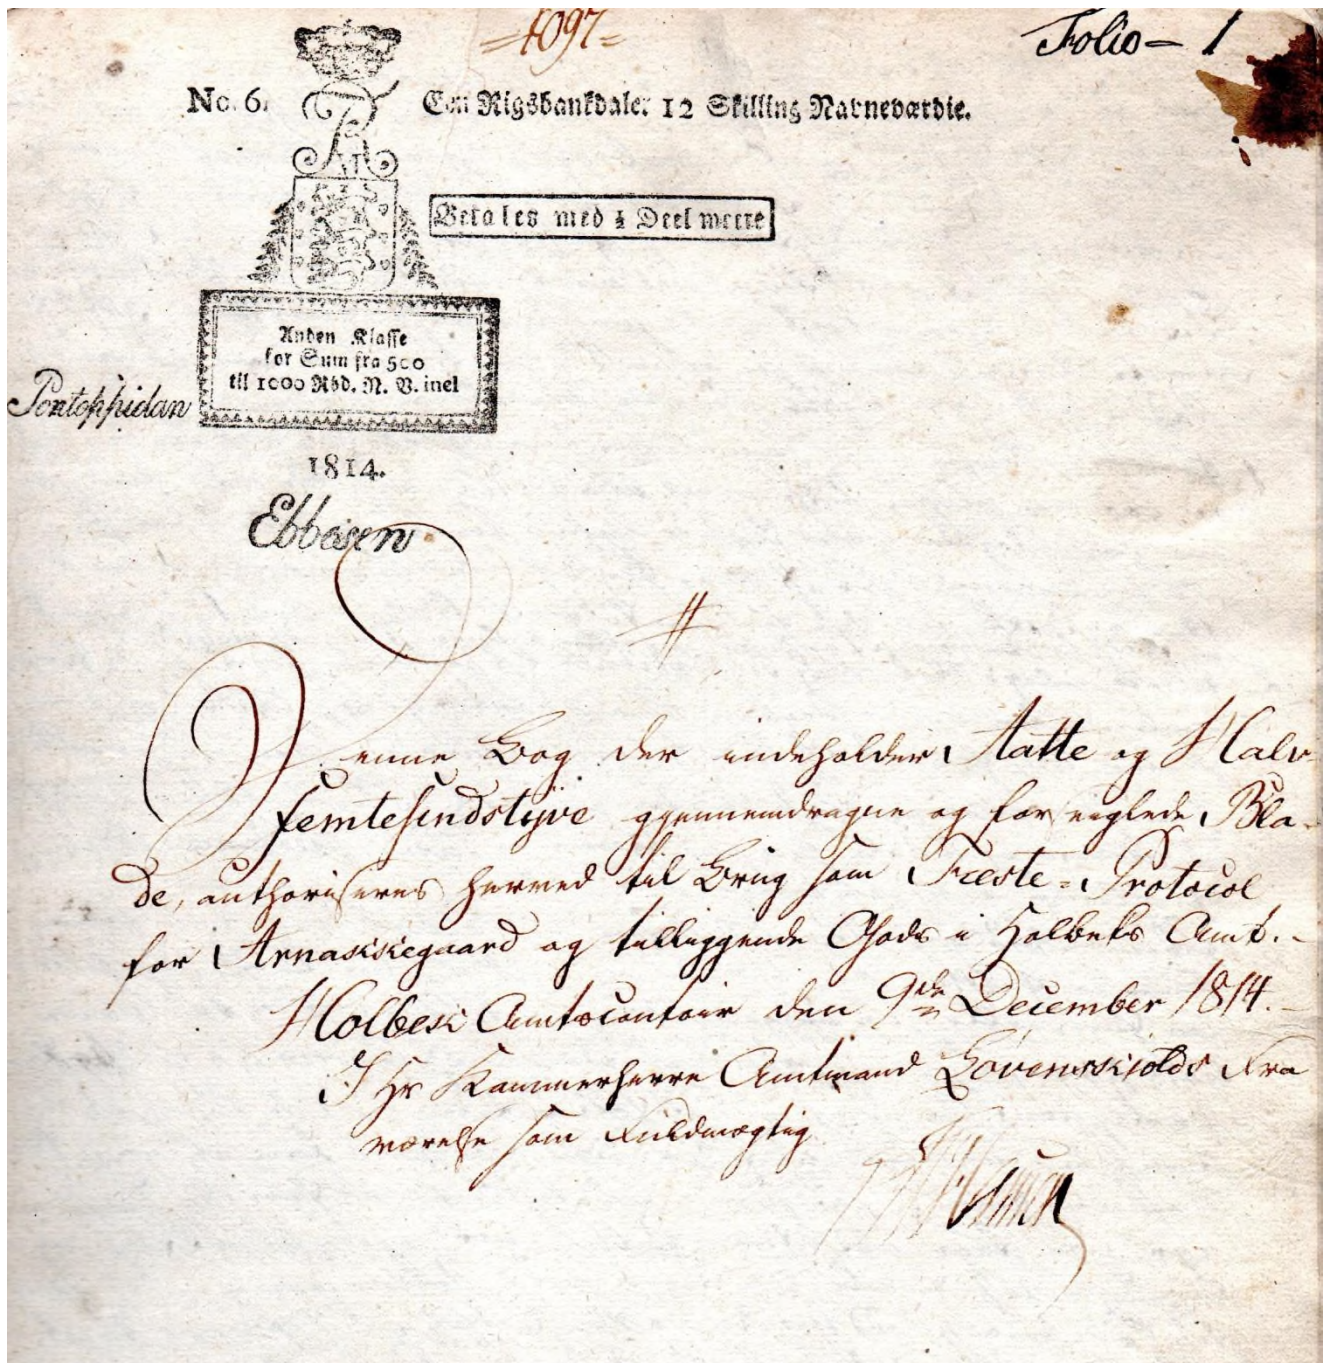 =1097=
Folio- 1
No. 6. Een Rigsbankdaler 12 Skilling Navneværdie.
Betales med ½ Deel meere
Anden Klasse
for Sum fra 500
til 1000 Rbd. N. V. incl
Pontoppidan
1814.
Ebbesen
Denne Bog der indeholder Aatte og Halv-
femtesindstyve gjennemdragne og forseiglede Bla-
de, authoriseres herved til Brug som Fæste-Protocol
for Arnakkegaard og tilliggende Gods i Holbeks Amt.-
Holbek Amtscontoir den 9de December 1814.-
I Hr Kammerherre Amtmand Løvenskiolds Fra
værelse som Fuldmægtig